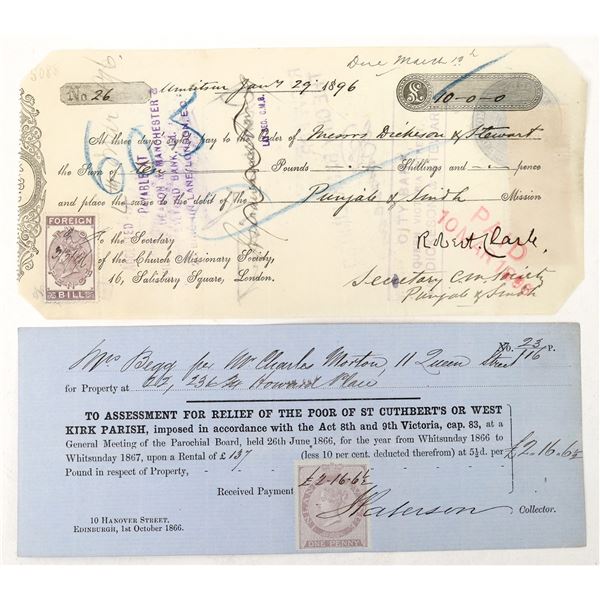 Due March
No 26
Amritsar Jany 29 1896
£ 10-0-0
At three days sight pay to the Order of Messrs Dickeson & Stewart
the Sum of Ten Pounds Shillings and pence
and place the same to the debit of the Punjab & Sindh Mission
FOREIGN
BILL
To the Secretary
of the Church Missionary Society,
16, Salisbury Square, London.
Robert Clark
Secretary C.M. Society
Punjab & Sindh
PAID
PAYABLE AT
LONDON, E.C.
Mrs Begg per Mr Charles Morton, 11 Queen Street
No. 23/16 P.
for Property at 22, 23 Howard Place
TO ASSESSMENT FOR RELIEF OF THE POOR OF ST CUTHBERT'S OR WEST
KIRK PARISH, imposed in accordance with the Act 8th and 9th Victoria, cap. 83, at a
General Meeting of the Parochial Board, held 26th June 1866, for the year from Whitsunday 1866 to
Whitsunday 1867, upon a Rental of £137 (less 10 per cent. deducted therefrom) at 5½d. per £2-16-6½
Pound in respect of Property,
£2-16-6½
Received Payment
ONE PENNY
Paterson
Collector.
10 HANOVER STREET,
EDINBURGH, 1st October 1866.